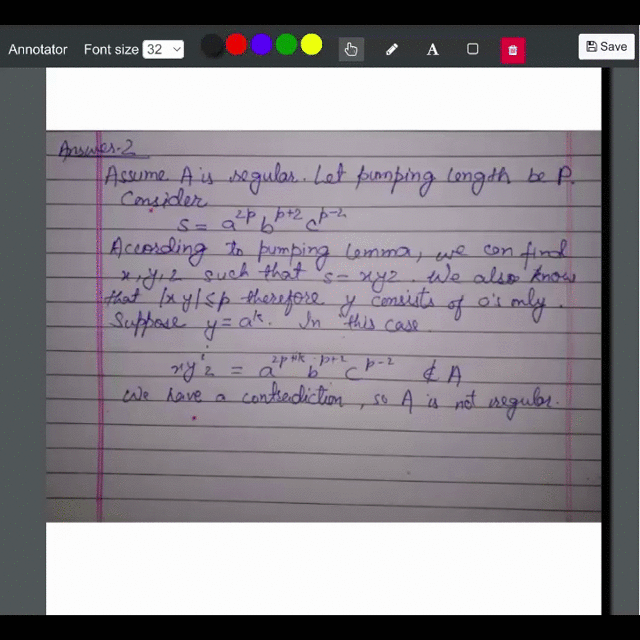 Annotator Font size 32 A Save
Answer-2
Assume A is regular. Let pumping length be P.
Consider
s = a^2p b^p+2 c^p-2
According to pumping lemma, we can find
x, y, z such that s = xyz. We also know
that |xy| ≤ p therefore y consists of a's only.
Suppose y = a^k. In this case
xy^i z = a^2p+ik b^p+2 c^p-2 ∉ A
We have a contradiction, so A is not regular.